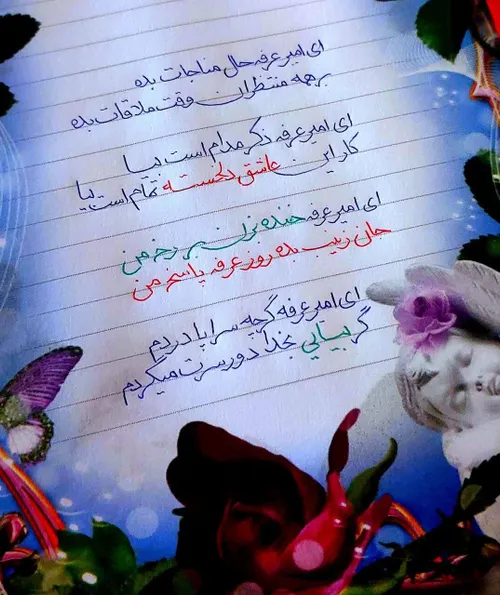 ای امیر عرفه حال مناجات بده
برهمه منتظران وقت ملاقات بده
ای امیر عرفه ذکر مدام است بیا
کار این عاشق دلخسته تمام است بیا
ای امیر عرفه خنده بزن بر رخ من
جان زینب بده روز عرفه پاسخ من
ای امیر عرفه گرچه سراپا دردم
گر بیایی بخدا دور سرت میگردم